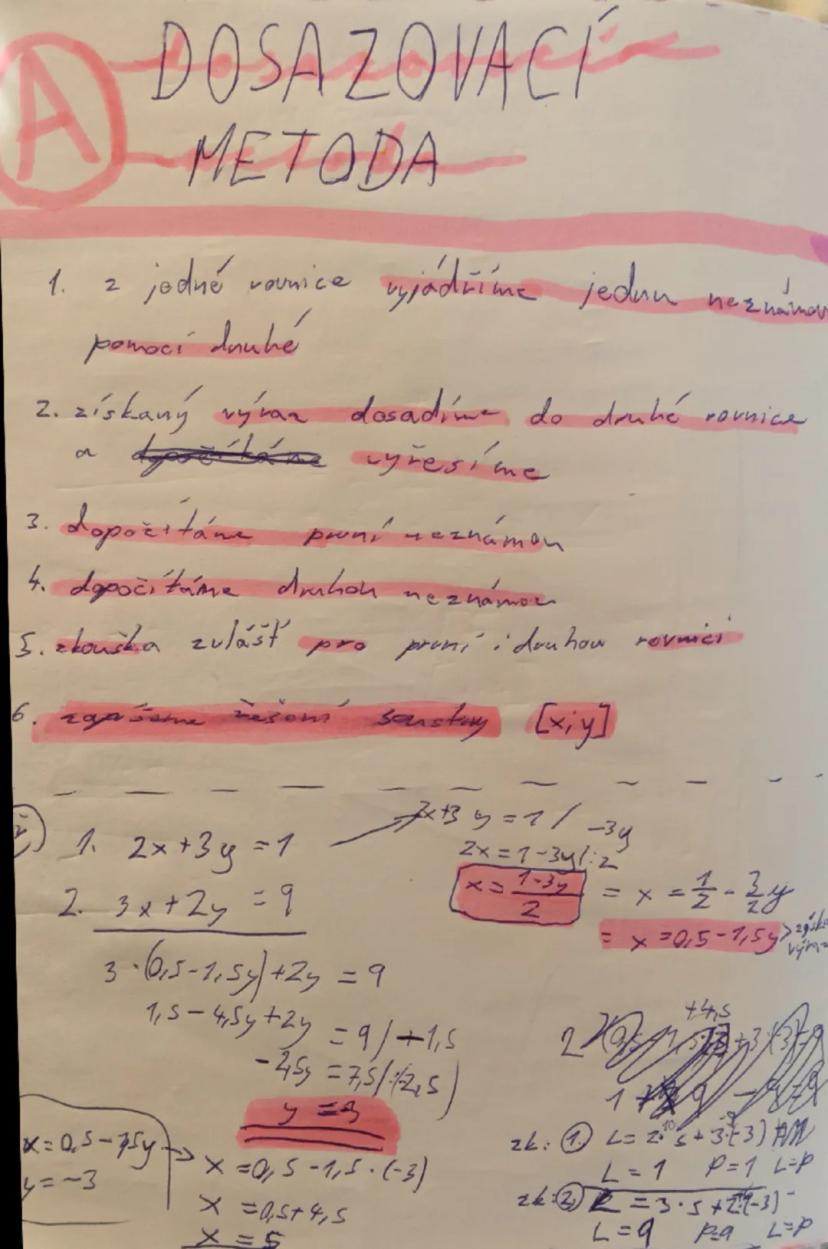 A
DOSAZOVACÍ
METODA
1. z jedné rovnice vyjádříme jednu neznámou
pomocí druhé
2. získaný výraz dosadíme do druhé rovnice
a vyřešíme
3. dopočítáme první neznámou
4. dopočítáme druhou neznámou
5. zkouška zvlášť pro první i druhou rovnici
6. zapíšeme řešení soustavy [x;y]
1. 2x+3y=1
2x+3y=1/-3y
2x=1-3y/:2
2. 3x+2y=9
x=\frac{1-3y}{2} = x = \frac{1}{2} - \frac{3}{2}y
= x=0,5-1,5y
3·(0,5-1,5y)+2y=9
1,5-4,5y+2y=9/-1,5
-2,5y=7,5/:(-2,5)
y=-3
x=0,5-1,5y
y=-3
x=0,5-1,5·(-3)
x=0,5+4,5
x=5
+4,5
zk: 1. L=2·5+3·(-3)
L=1 P=1 L=P
zk: 2. L=3·5+2·(-3)
L=9 P=9 L=P